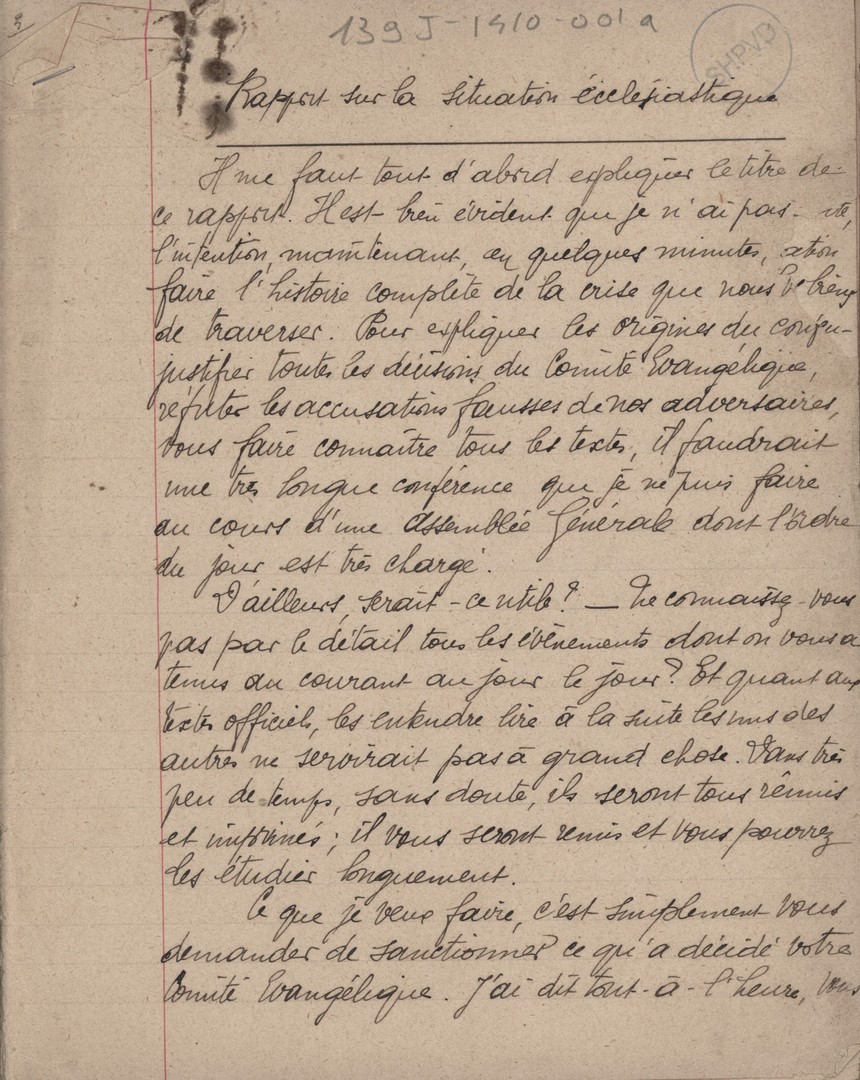 139 J-1410-001a
SHPVD
Rapport sur la situation écclésiastique
Il me faut tout d'abord expliquer le titre de
ce rapport. Il est bien évident que je n'ai pas
l'intention, maintenant, en quelques minutes,
faire l'histoire complète de la crise que nous
de traverser. Pour expliquer les origines du
justifier toutes les décisions du Comité Evangélique,
réfuter les accusations fausses de nos adversaires,
vous faire connaître tous les textes, il faudrait
une très longue conférence que je ne puis faire
au cours d'une Assemblée Générale dont l'ordre
du jour est très chargé.
D'ailleurs, serait-ce utile ? — Ne connaissez-vous
pas par le détail tous les évènements dont on vous a
tenus au courant au jour le jour ? Et quant aux
textes officiels, les entendre lire à la suite les uns des
autres ne servirait pas à grand chose. Dans très
peu de temps, sans doute, ils seront tous réunis
et imprimés ; il vous seront remis et vous pourrez
les étudier longuement.
Ce que je veux faire, c'est simplement vous
demander de sanctionner ce qu'a décidé votre
Comité Evangélique. J'ai dit tout-à-l'heure, vous